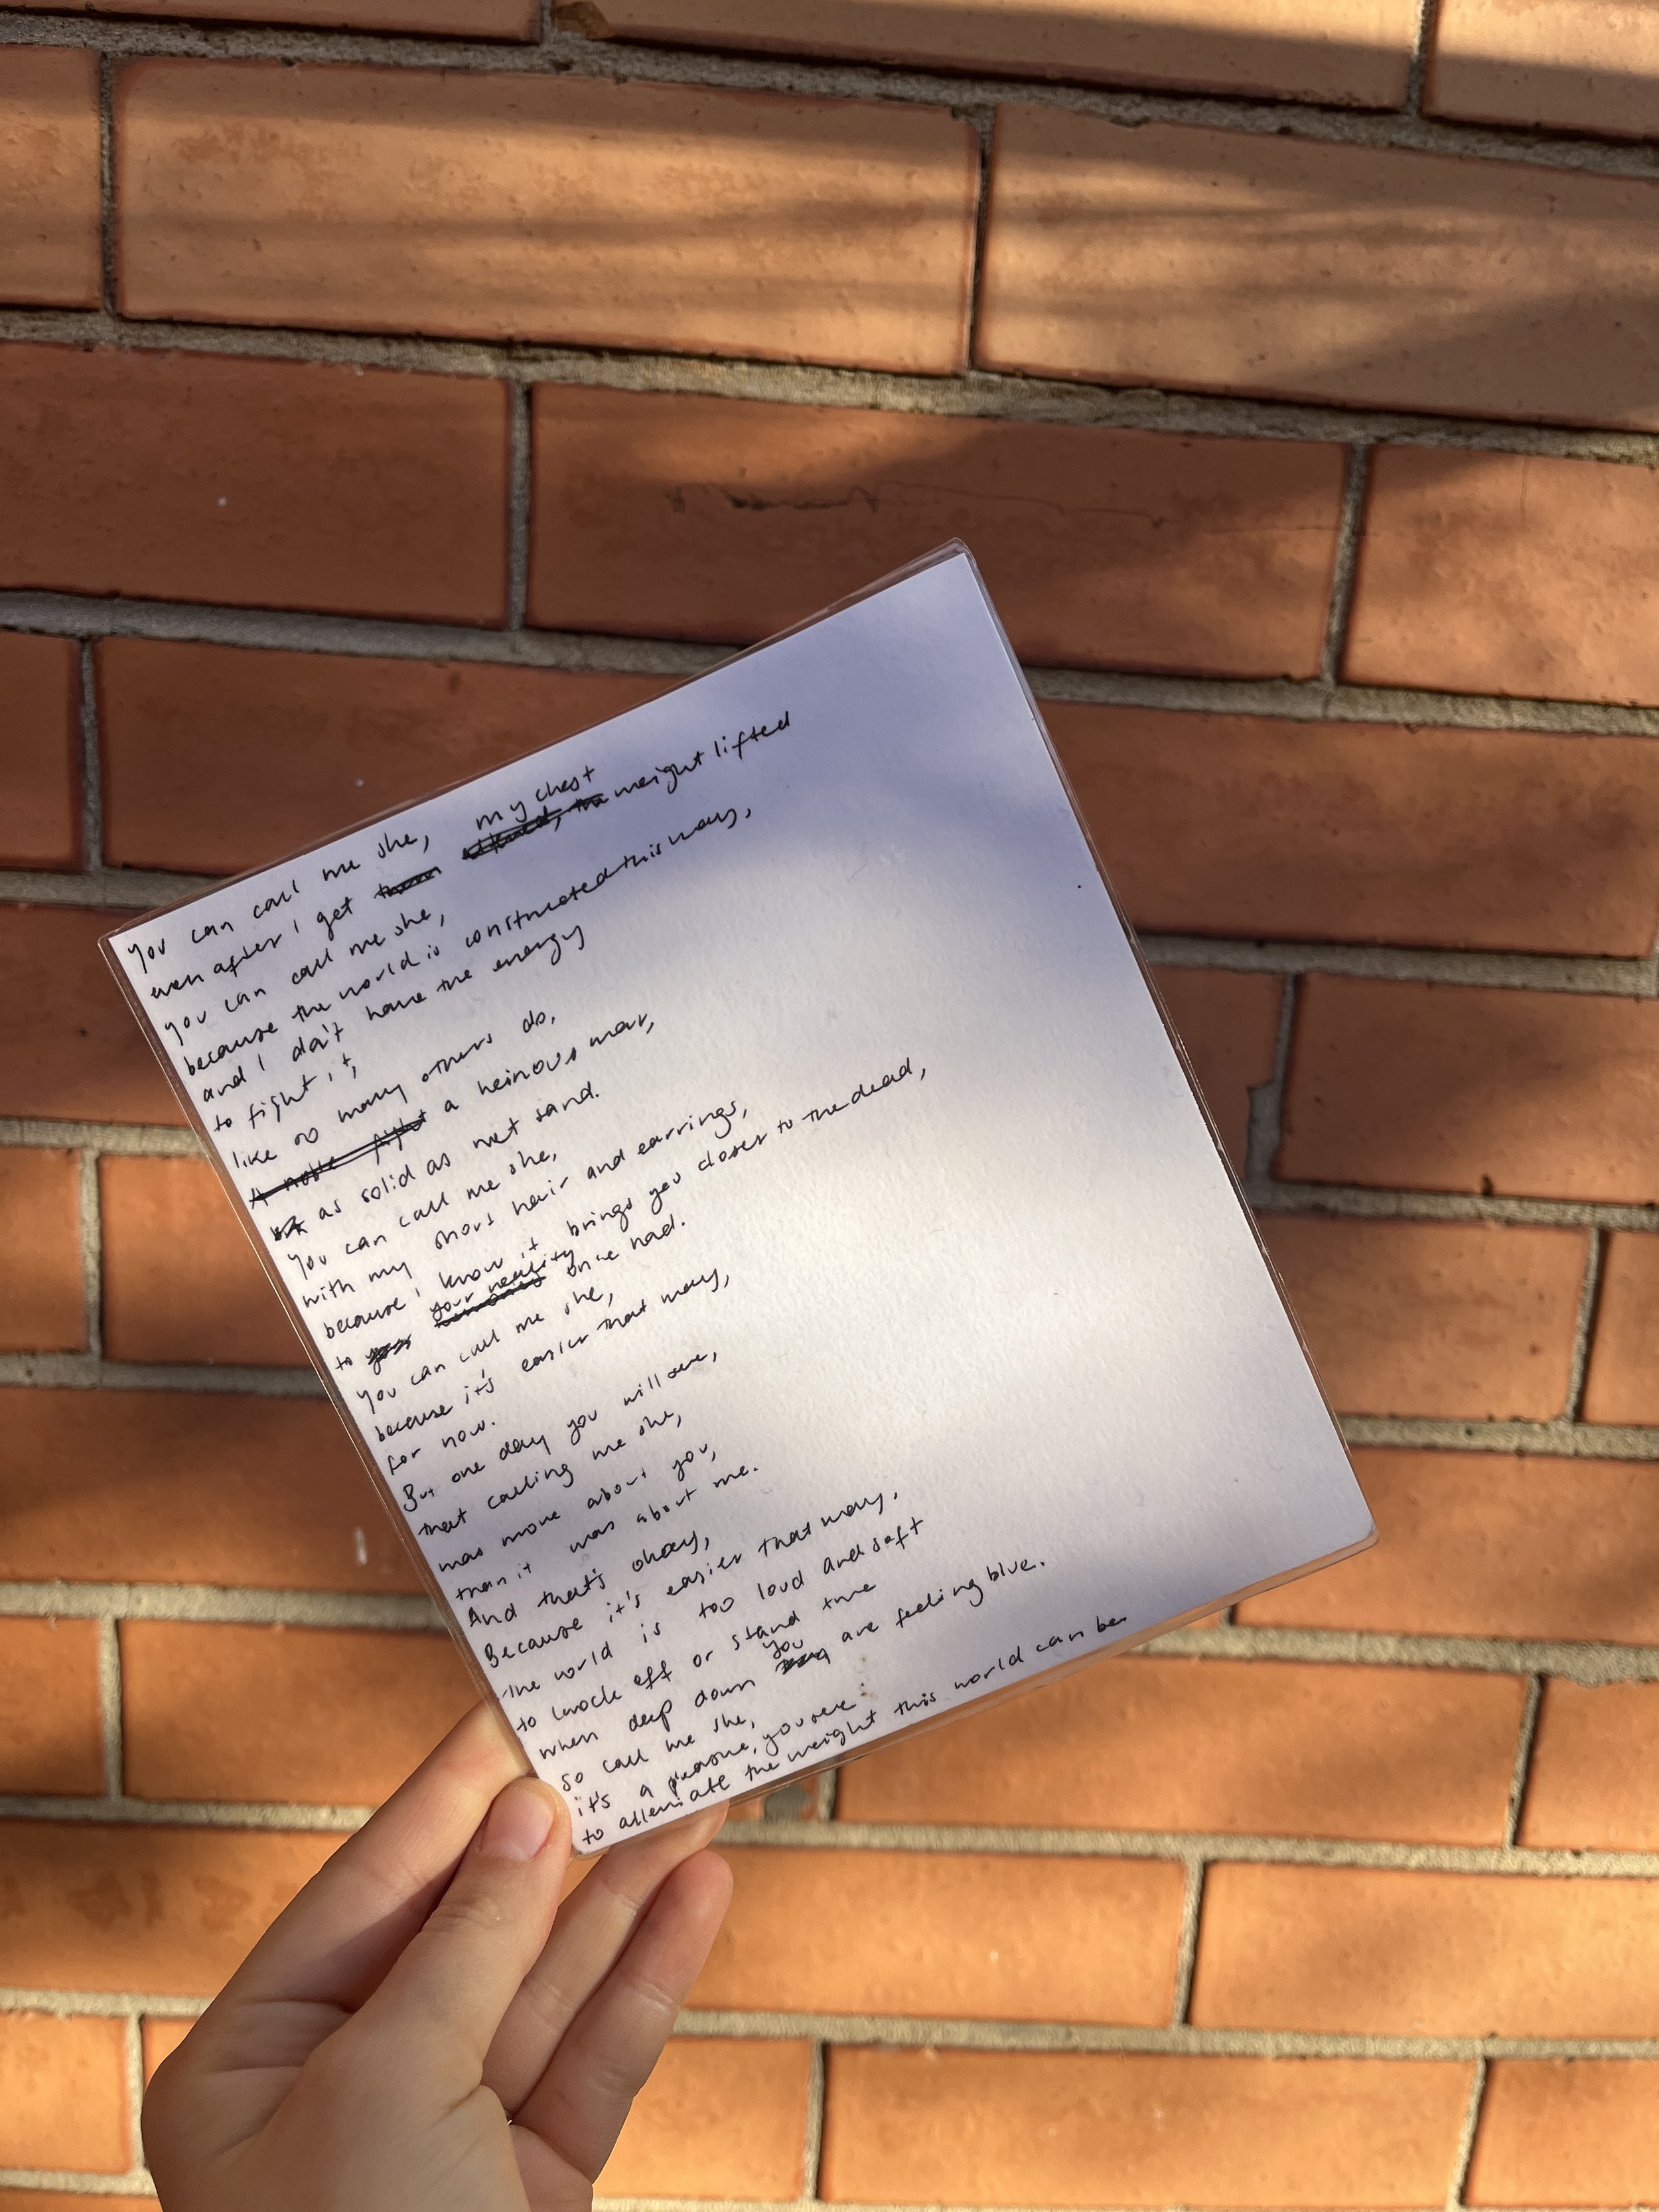 You can call me she,
even after I get my chest weight lifted
You can call me she,
because the world is constructed this way,
and I don't have the energy
to fight it,
like so many others do.
A noble fight a heinous war,
as solid as wet sand.
You can call me she,
with my short hair and earrings,
because I know it brings you closer to the dead,
to your reality once had.
You can call me she,
because it's easier that way,
for now.
But one day you will see,
that calling me she,
was more about you,
than it was about me.
And that's okay,
Because it's easier that way,
The world is too loud and soft
to knock off or stand true
when deep down you are feeling blue.
So call me she,
it's a please, you see
to alleviate the weight this world can be.